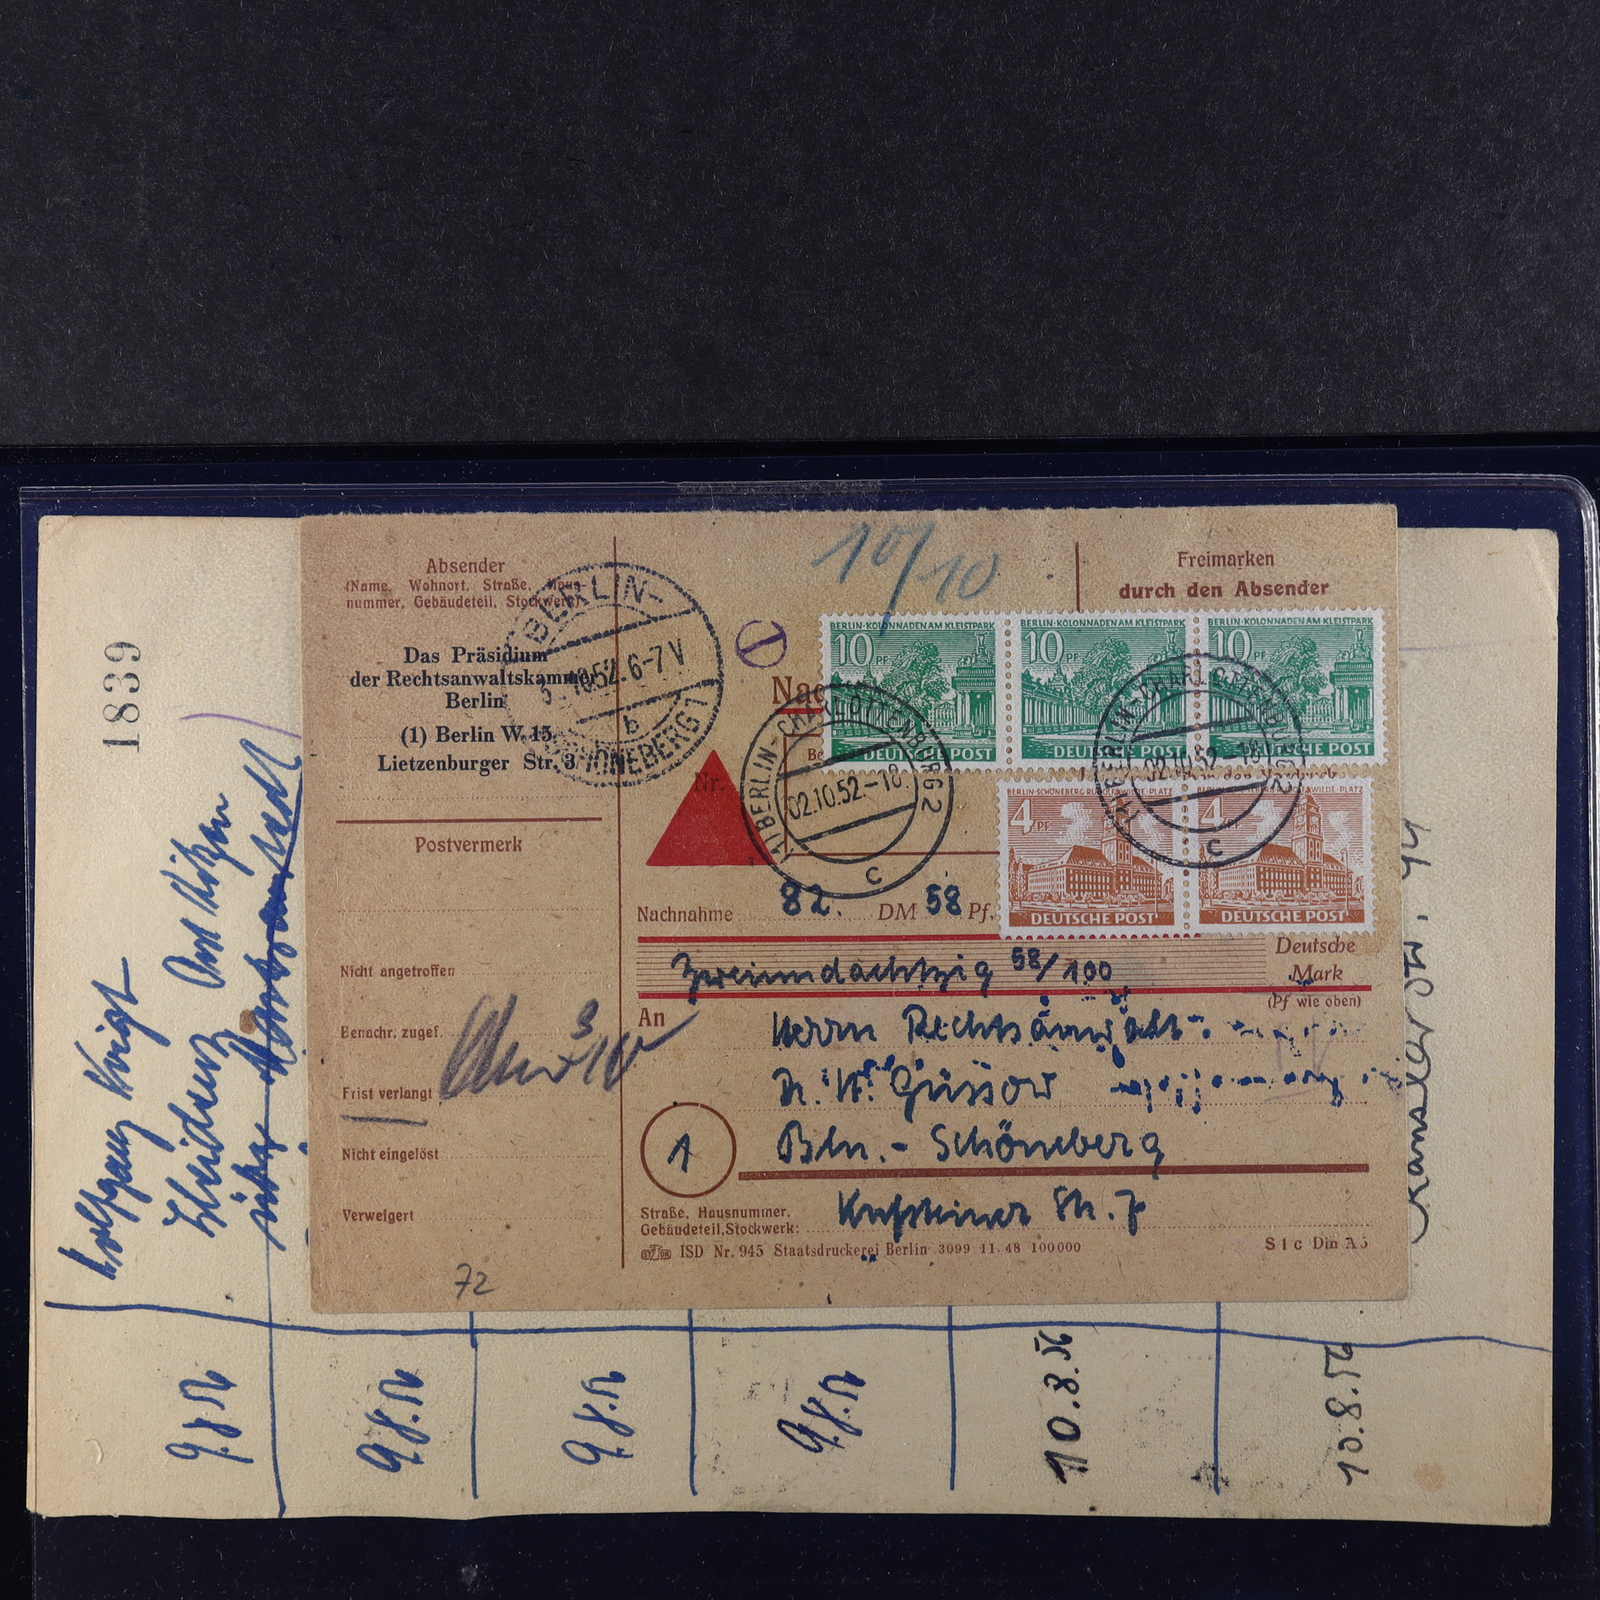 Absender
(Name, Wohnort, Straße, Haus-
nummer, Gebäudeteil, Stockwerk)
Das Präsidium
der Rechtsanwaltskammer
Berlin
(1) Berlin W. 15,
Lietzenburger Str. 3
Postvermerk
Nicht angetroffen
Benachr. zugef.
Frist verlangt
Nicht eingelöst
Verweigert
72
BERLIN-
10.52. 6-7 V
b
SCHÖNEBERG 1
10/10
Freimarken
durch den Absender
BERLIN-KOLONNADEN AM KLEISTPARK
10 PF
DEUTSCHE POST
BERLIN-KOLONNADEN AM KLEISTPARK
10 PF
DEUTSCHE POST
BERLIN-KOLONNADEN AM KLEISTPARK
10 PF
DEUTSCHE POST
Nac
Be
Nr.
(1) BERLIN-CHARLOTTENBURG 2
02.10.52-18
c
(1) BERLIN-CHARLOTTENBURG 2
02.10.52-18
c
4 PF
DEUTSCHE POST
4 PF
DEUTSCHE POST
Nachnahme 82. DM 58 Pf.
Zweiundachtzig 58/100
Deutsche
Mark
(Pf wie oben)
An
Herrn Rechtsanwalt
Dr. W. Güssow
1
Bln.-Schöneberg
Straße, Hausnummer,
Gebäudeteil, Stockwerk: Kufsteiner Str. 7
ISD Nr. 945 Staatsdruckerei Berlin 3099 11.48 100000
S1c Din A5
1839
Wolfgang
9.8.52
9.8.52
9.8.52
9.8.52
10.8.56
10.8.52